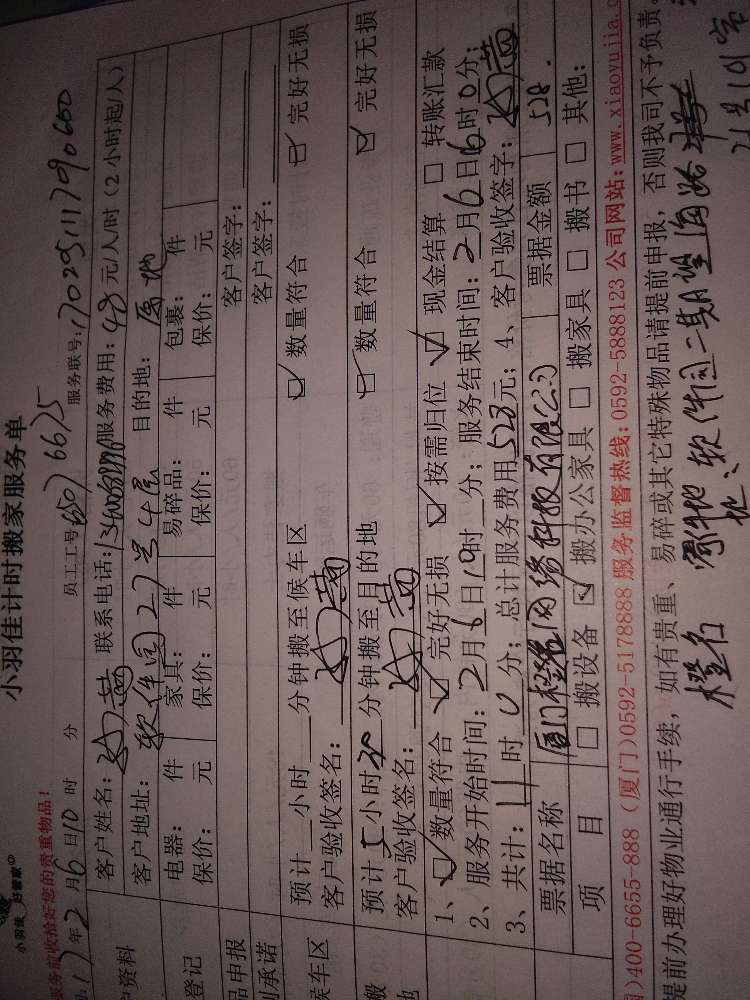 小羽佳 好管家
小羽佳计时搬家服务单
服务前收拾好您的贵重物品!
17年2月6日10时 分 员工工号 6507 6675 服务联号:1702511179 0600
户资料 客户姓名: 联系电话: 服务费用:48元/人/时(2小时起/人)
客户地址:软件园27号4层 目的地:原地
登记 电器: 件 家具: 件 易碎品: 件 包裹: 件
保价: 元 保价: 元 保价: 元 保价: 元
品申报 客户签字:
别承诺 客户签字:
候车区 预计 小时 分钟搬至候车区 ☑数量符合 ☑完好无损
客户验收签名:
搬 预计5小时30分钟搬至目的地 ☑数量符合 ☑完好无损
地 客户验收签名:
1、☑数量符合 ☑完好无损 ☑按需归位 ☑现金结算 □转账汇款
2、服务开始时间:2月6日10时 分;服务结束时间:2月6日16时0分;
3、共计:11时0分;总计服务费用528元;4、客户验收签字:
票据名称 厦门橙名网络科技有限公司 票据金额 528.
项 目 □搬设备 ☑搬办公家具 □搬家具 □搬书 □其他:
)400-6655-888 (厦门)0592-5178888 服务监督热线:0592-5888123 公司网站:www.xiaoyujia.c
提前办理好物业通行手续,如有贵重、易碎或其它特殊物品请提前申报,否则我司不予负责。
橙名 软件园二期望海路
地:
21号101室